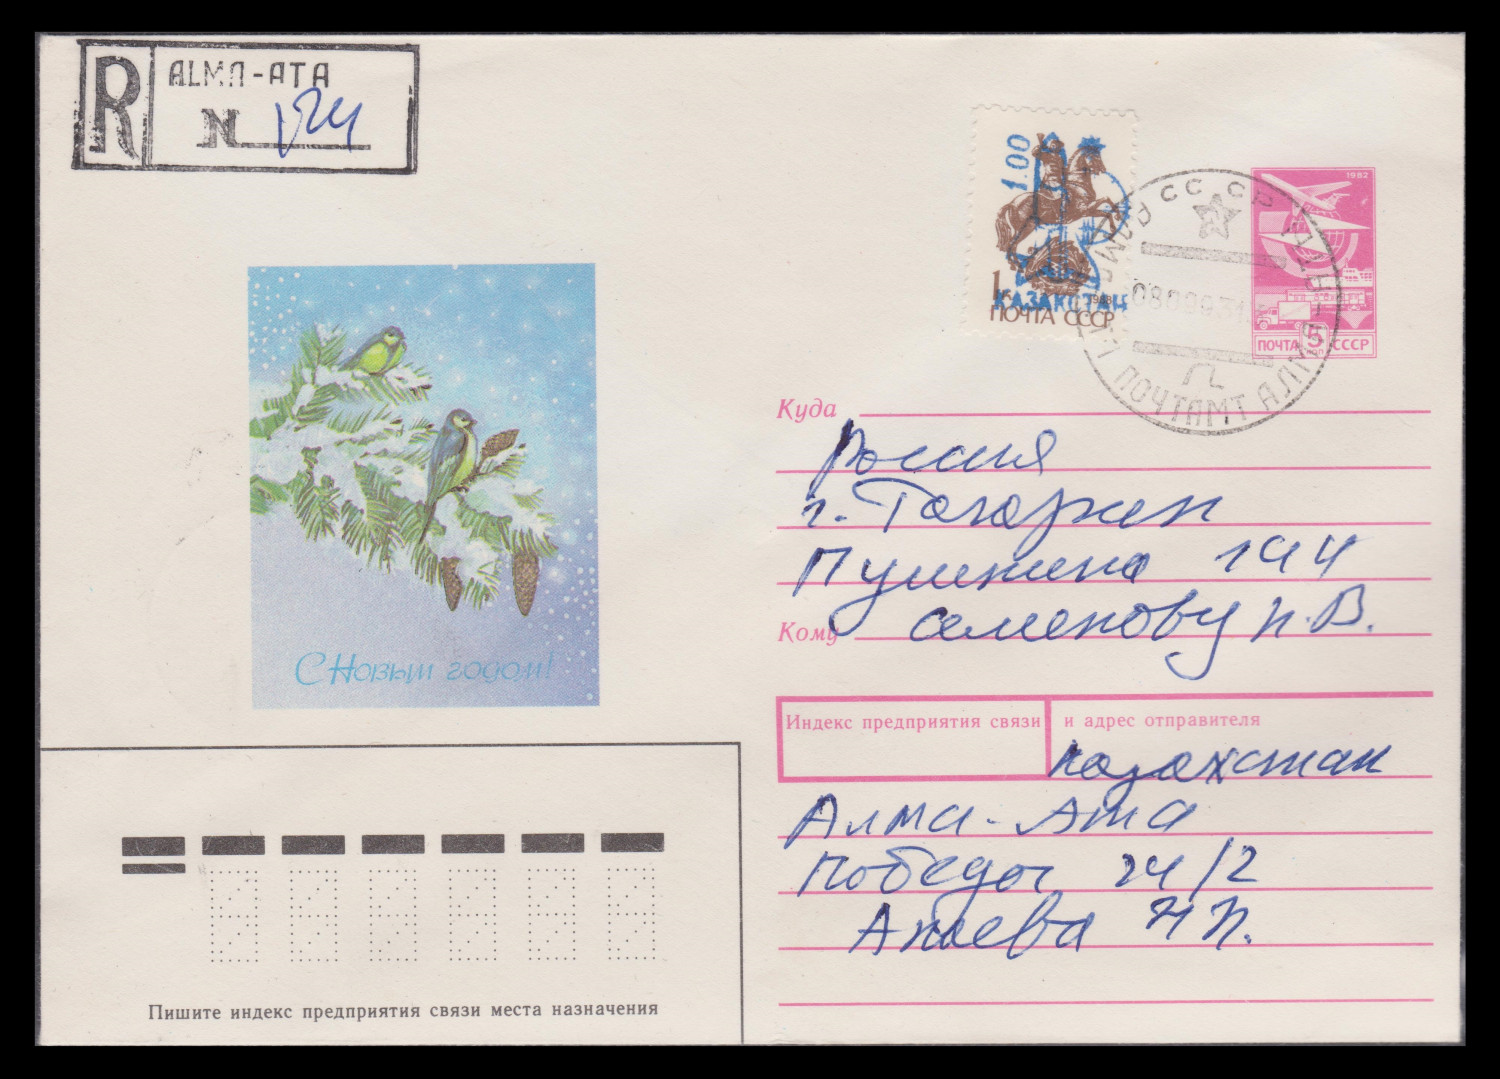 R ALMA-ATA
N 124
1.00
1к 1988
КАЗАХСТАН
ПОЧТА СССР
1982
ПОЧТА 5 КОП СССР
СССР
080993
ПОЧТАМТ
С Новым годом!
Куда
Россия
г. Тагаржен
Пушкина 144
Кому Семенову Н.В.
Индекс предприятия связи и адрес отправителя
Казахстан
Алма-Ата
Победы 24/2
Н П.
Пишите индекс предприятия связи места назначения